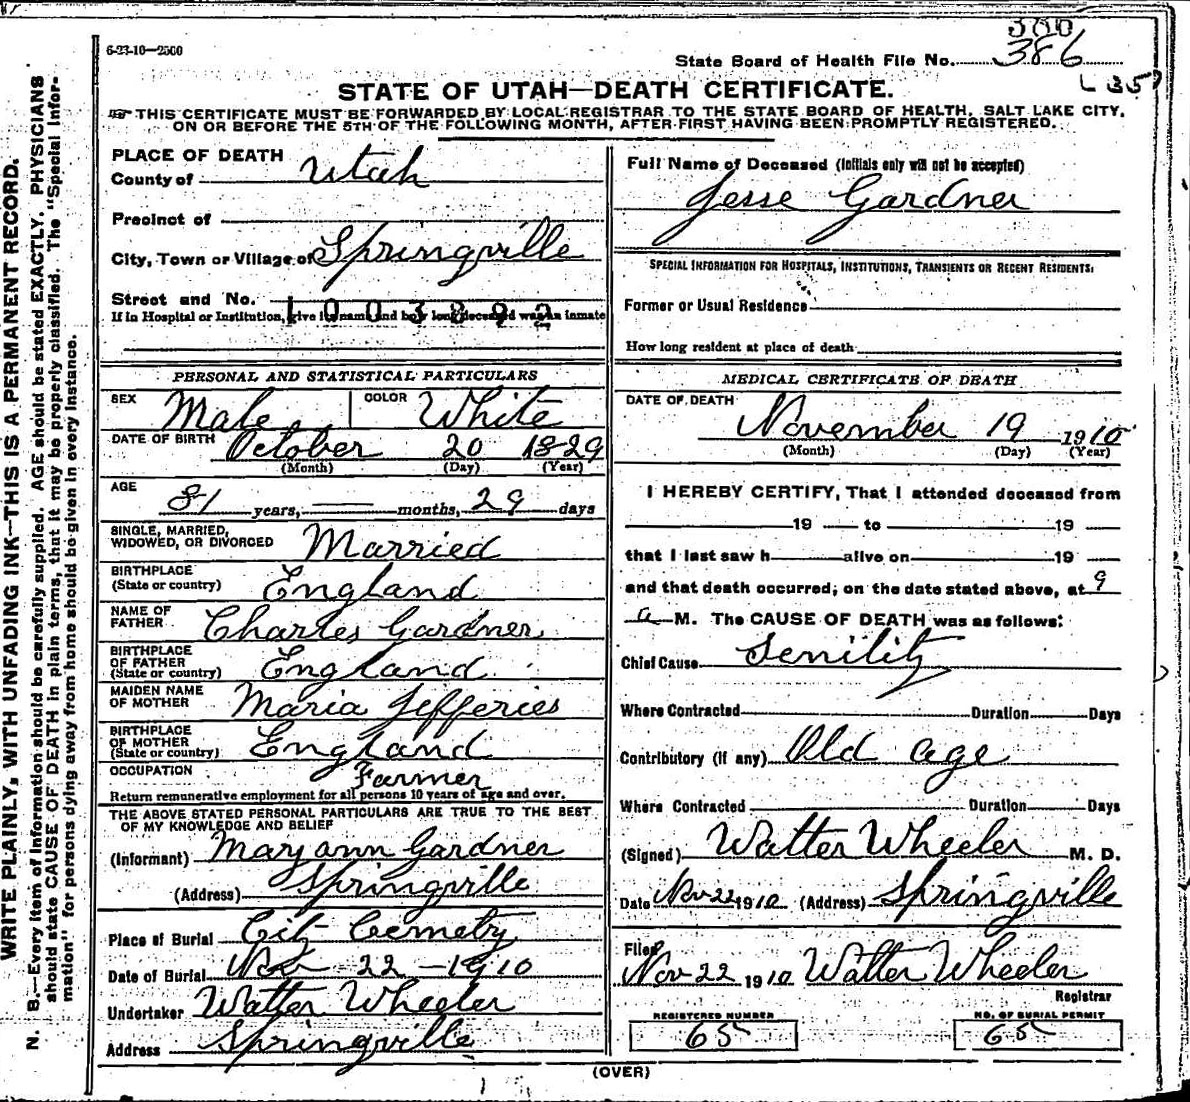 6-23-10—2500
380
State Board of Health File No. 386
L 357
STATE OF UTAH—DEATH CERTIFICATE.
THIS CERTIFICATE MUST BE FORWARDED BY LOCAL REGISTRAR TO THE STATE BOARD OF HEALTH, SALT LAKE CITY,
ON OR BEFORE THE 5TH OF THE FOLLOWING MONTH, AFTER FIRST HAVING BEEN PROMPTLY REGISTERED.
WRITE PLAINLY, WITH UNFADING INK—THIS IS A PERMANENT RECORD.
N. B.—Every item of information should be carefully supplied. AGE should be stated EXACTLY. PHYSICIANS
should state CAUSE OF DEATH in plain terms, that it may be properly classified. The "Special Infor-
mation" for persons dying away from home should be given in every instance.
PLACE OF DEATH
County of Utah
Precinct of
City, Town or Village of Springville
Street and No.
1003892
If in Hospital or Institution, give its name and how long deceased was an inmate
PERSONAL AND STATISTICAL PARTICULARS
SEX Male COLOR White
DATE OF BIRTH October 20 1829
(Month) (Day) (Year)
AGE
81 years, — months, 29 days
SINGLE, MARRIED,
WIDOWED, OR DIVORCED Married
BIRTHPLACE
(State or country) England
NAME OF
FATHER Charles Gardner
BIRTHPLACE
OF FATHER
(State or country) England
MAIDEN NAME
OF MOTHER Maria Jefferies
BIRTHPLACE
OF MOTHER
(State or country) England
OCCUPATION Farmer
Return remunerative employment for all persons 10 years of age and over.
THE ABOVE STATED PERSONAL PARTICULARS ARE TRUE TO THE BEST
OF MY KNOWLEDGE AND BELIEF
(Informant) Mary ann Gardner
(Address) Springville
Place of Burial City Cemetry
Date of Burial Nov 22 - 1910
Undertaker Walter Wheeler
Address Springville
Full Name of Deceased (Initials only will not be accepted)
Jesse Gardner
SPECIAL INFORMATION FOR HOSPITALS, INSTITUTIONS, TRANSIENTS OR RECENT RESIDENTS:
Former or Usual Residence
How long resident at place of death
MEDICAL CERTIFICATE OF DEATH
DATE OF DEATH
November 19 1910
(Month) (Day) (Year)
I HEREBY CERTIFY, That I attended deceased from
19 to 19
that I last saw h alive on 19
and that death occurred; on the date stated above, at 9
a M. The CAUSE OF DEATH was as follows:
Chief Cause Senility
Where Contracted Duration Days
Contributory (if any) Old age
Where Contracted Duration Days
(Signed) Walter Wheeler M. D.
Date Nov 22 1910 (Address) Springville
Filed
Nov 22 1910 Walter Wheeler
Registrar
REGISTERED NUMBER
65
NO. OF BURIAL PERMIT
65
(OVER)